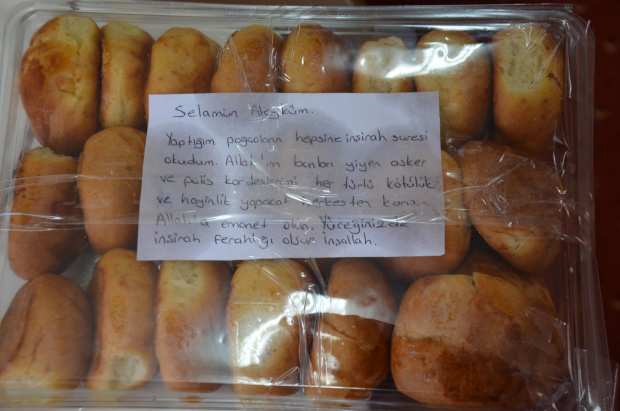 Selamün Aleyküm.
Yaptığım poğaçaların hepsine inşirah suresi
okudum. Allah'ım bunları yiyen asker
ve polis kardeşlerimi her türlü kötülük
ve hainlik yapacak herkesten koru.
Allah'a emanet olun. Yüreğinizde
inşirah ferahlığı olsun inşallah.